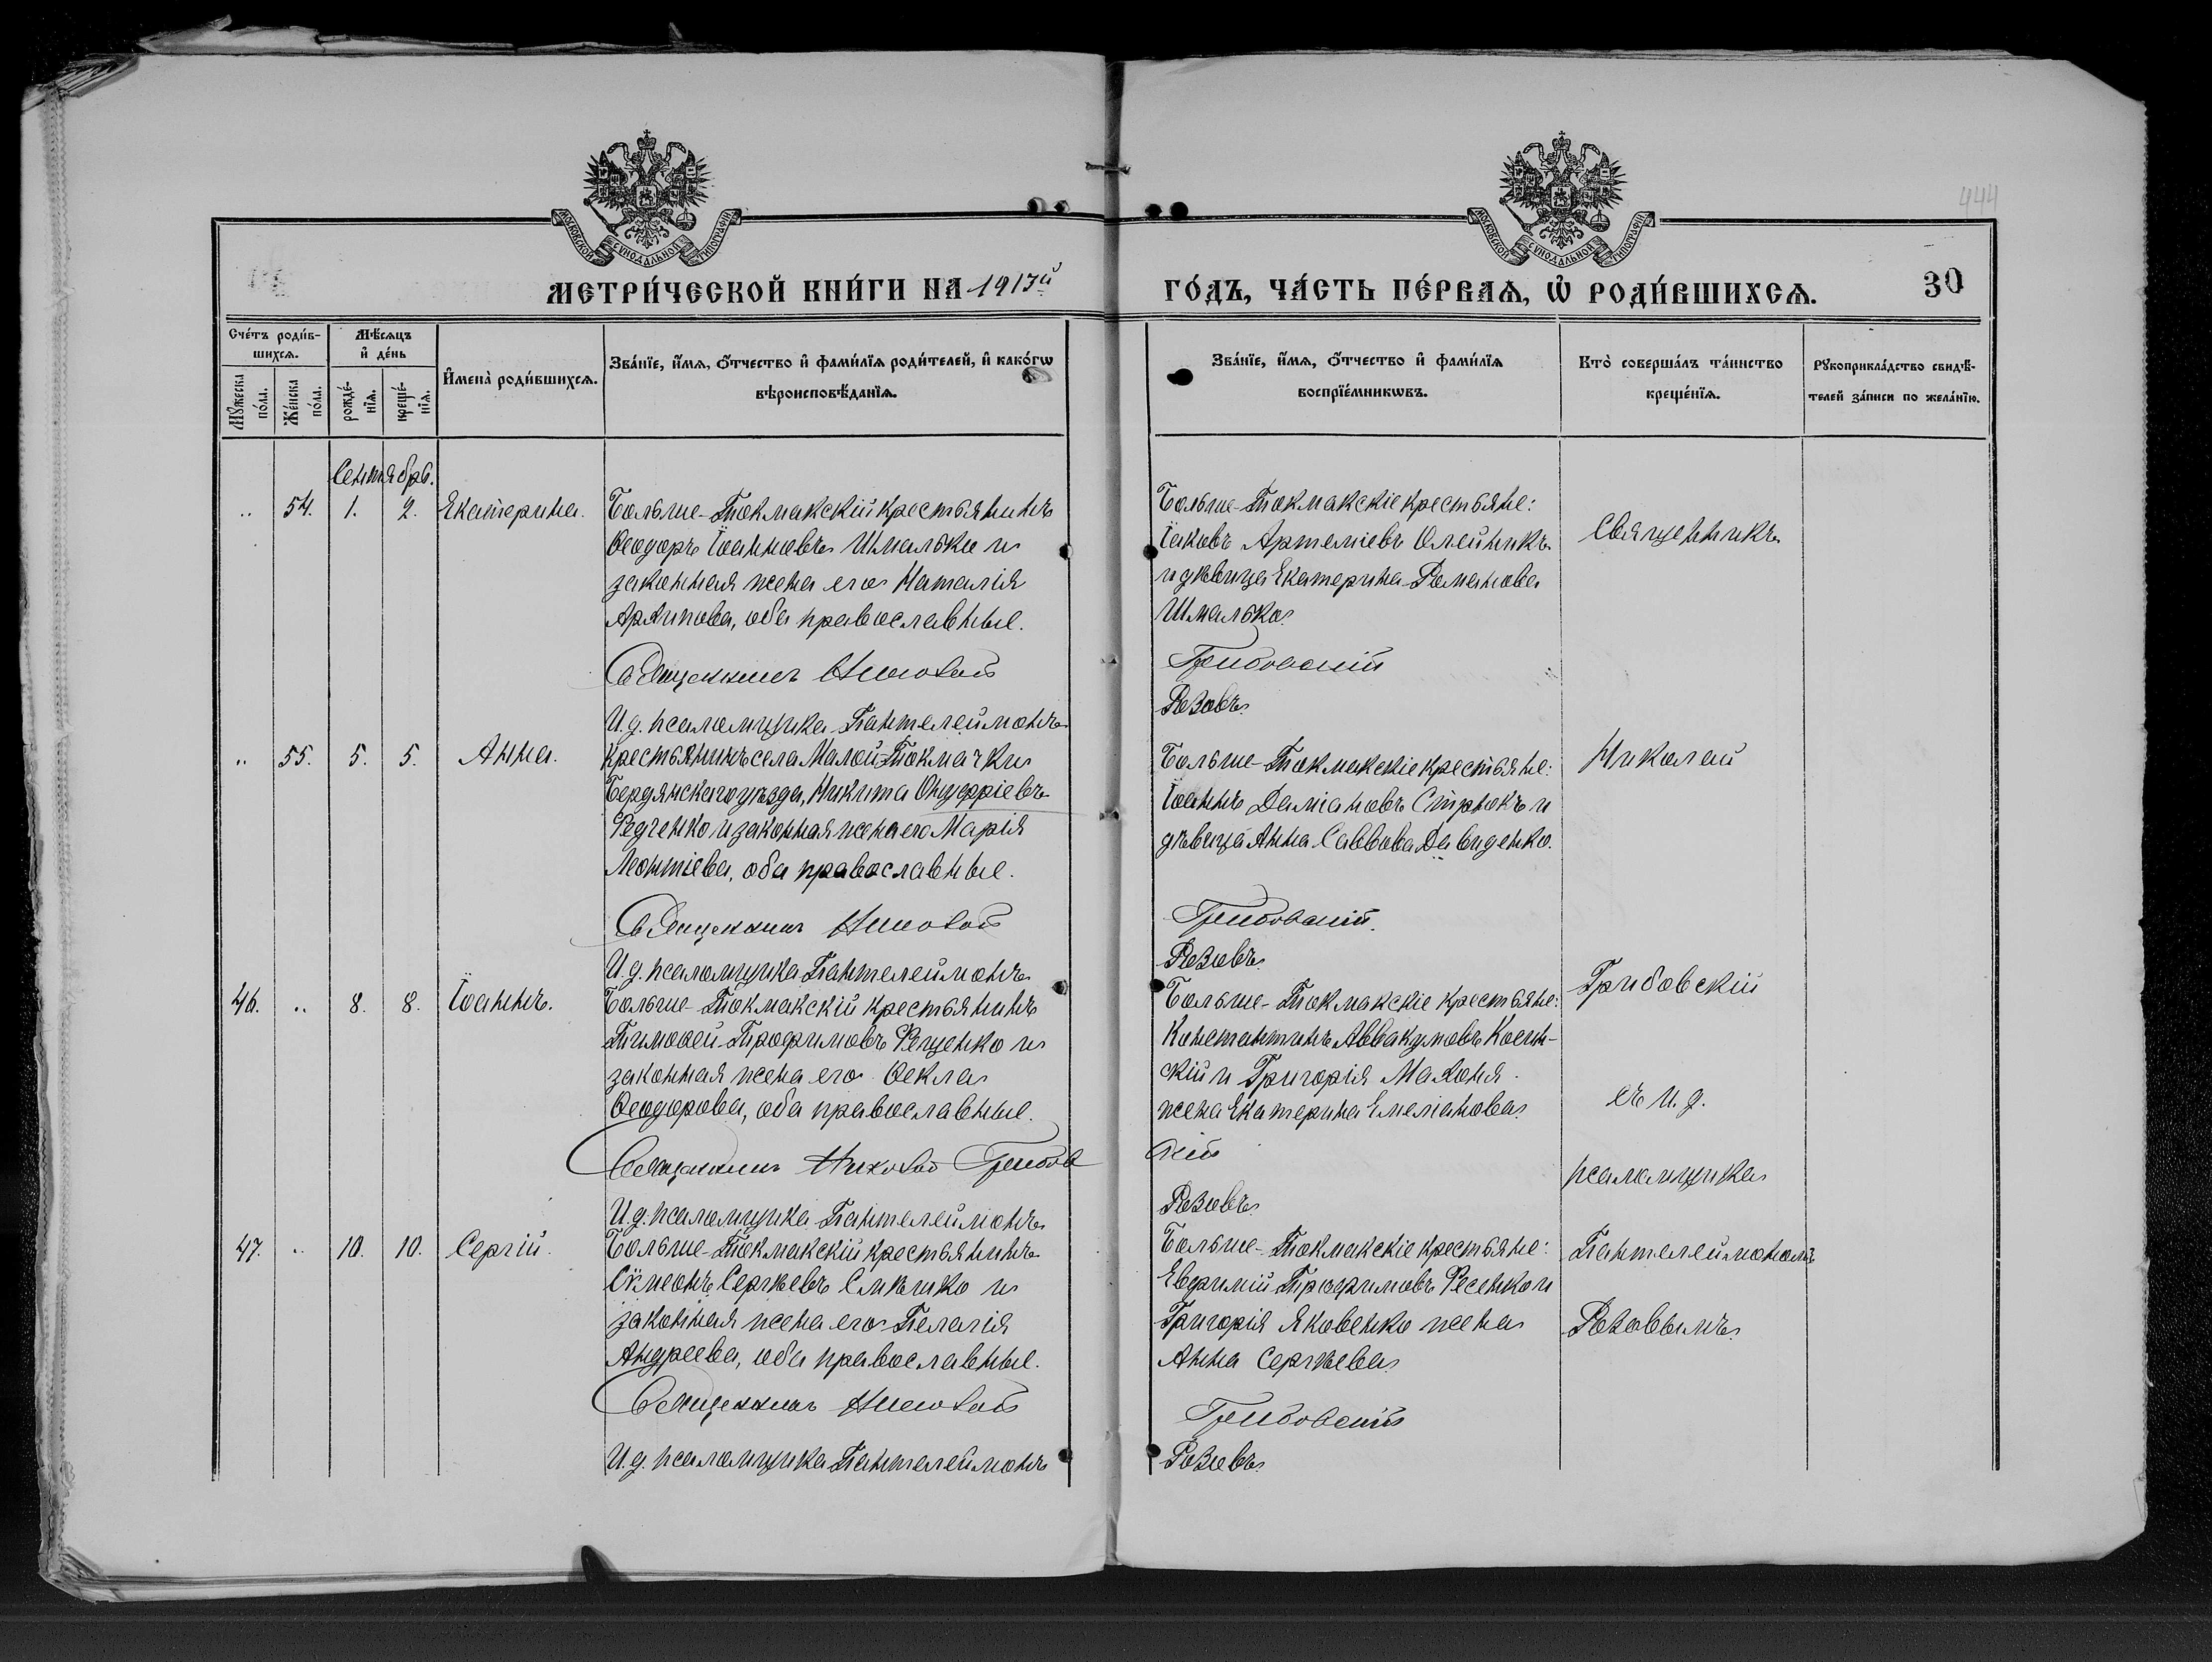 МОСКОВСКОЙ СѴНОДАЛЬНОЙ ТИПОГРАФІИ
МОСКОВСКОЙ СѴНОДАЛЬНОЙ ТИПОГРАФІИ
444
МЕТРИ́ЧЕСКОЙ КНИ́ГИ НА 1913й
ГО́ДЪ, ЧА́СТЬ ПЕ́РВАѦ, Ѡ҆ РОДИ́ВШИХСѦ.
30
Сче́тъ роди́в-
шихсѧ.
Мꙋ́жеска по́ла.
Же́нска по́ла.
Мѣ́сѧцъ
и҆ де́нь
рожде́-нїѧ.
креще́-нїѧ.
И҆мена̀ роди́вшихсѧ.
Зва́нїе, и҆́мѧ, ѻ҆́тчество и҆ фами́лїѧ роди́телей, и҆ како́гѡ
вѣроисповѣ́данїѧ.
Зва́нїе, и҆́мѧ, ѻ҆́тчество и҆ фами́лїѧ
воспрїе́мникѡвъ.
Кто̀ соверша́лъ та́инство
креще́нїѧ.
Рꙋкоприкла́дство свидѣ́-
телей за́писи по жела́нїю.
Сентябрь.
.. 54. 1. 2. Екатерина.
Больше-Токмакскій крестьянинъ
Ѳеодоръ Іоанновъ Шмалько и
законная жена его Наталія
Архипова, оба православные.
Священникъ Николай
И.д. псаломщика Пантелеймонъ
Больше-Токмакскіе крестьяне:
Іаковъ Артеміевъ Олейникъ
и дѣвица Екатерина Романова
Шмалько.
Грибовскій
Розовъ.
Священникъ
.. 55. 5. 5. Анна.
Крестьянинъ села Малой-Токмачки
Бердянскаго уѣзда, Никита Онуфріевъ
Редченко и законная жена его Марія
Леонтіева, оба православные.
Священникъ Николай
И.д. псаломщика Пантелеймонъ
Больше-Токмакскіе крестьяне:
Іоаннъ Даміановъ Стрюкъ и
дѣвица Анна Саввова Давиденко.
Грибовскій.
Розовъ.
Николай
46. .. 8. 8. Іоаннъ.
Больше-Токмакскій крестьянинъ
Тимоѳей Трофимовъ Рещенко и
законная жена его Ѳекла
Ѳеодорова, оба православные.
Священникъ Николай Грибов
И.д. псаломщика Пантелеймонъ
Больше-Токмакскіе крестьяне:
Константинъ Аввакумовъ Косин-
скій и Григорія Махоня
жена Екатерина Емеліанова
скій
Розовъ.
Грибовскій
съ и.д.
псаломщика
47. .. 10. 10. Сергій.
Больше-Токмакскій крестьянинъ
Сѵмеонъ Сергѣевъ Смѣшко и
законная жена его Пелагія
Андреева, оба православные.
Священникъ Николай
И.д. псаломщика Пантелеймонъ
Больше-Токмакскіе крестьяне:
Евфимій Трофимовъ Ресенко и
Григорія Яковенко жена
Анна Сергѣева
Грибовскій
Розовъ.
Пантелеймономъ
Розовымъ.